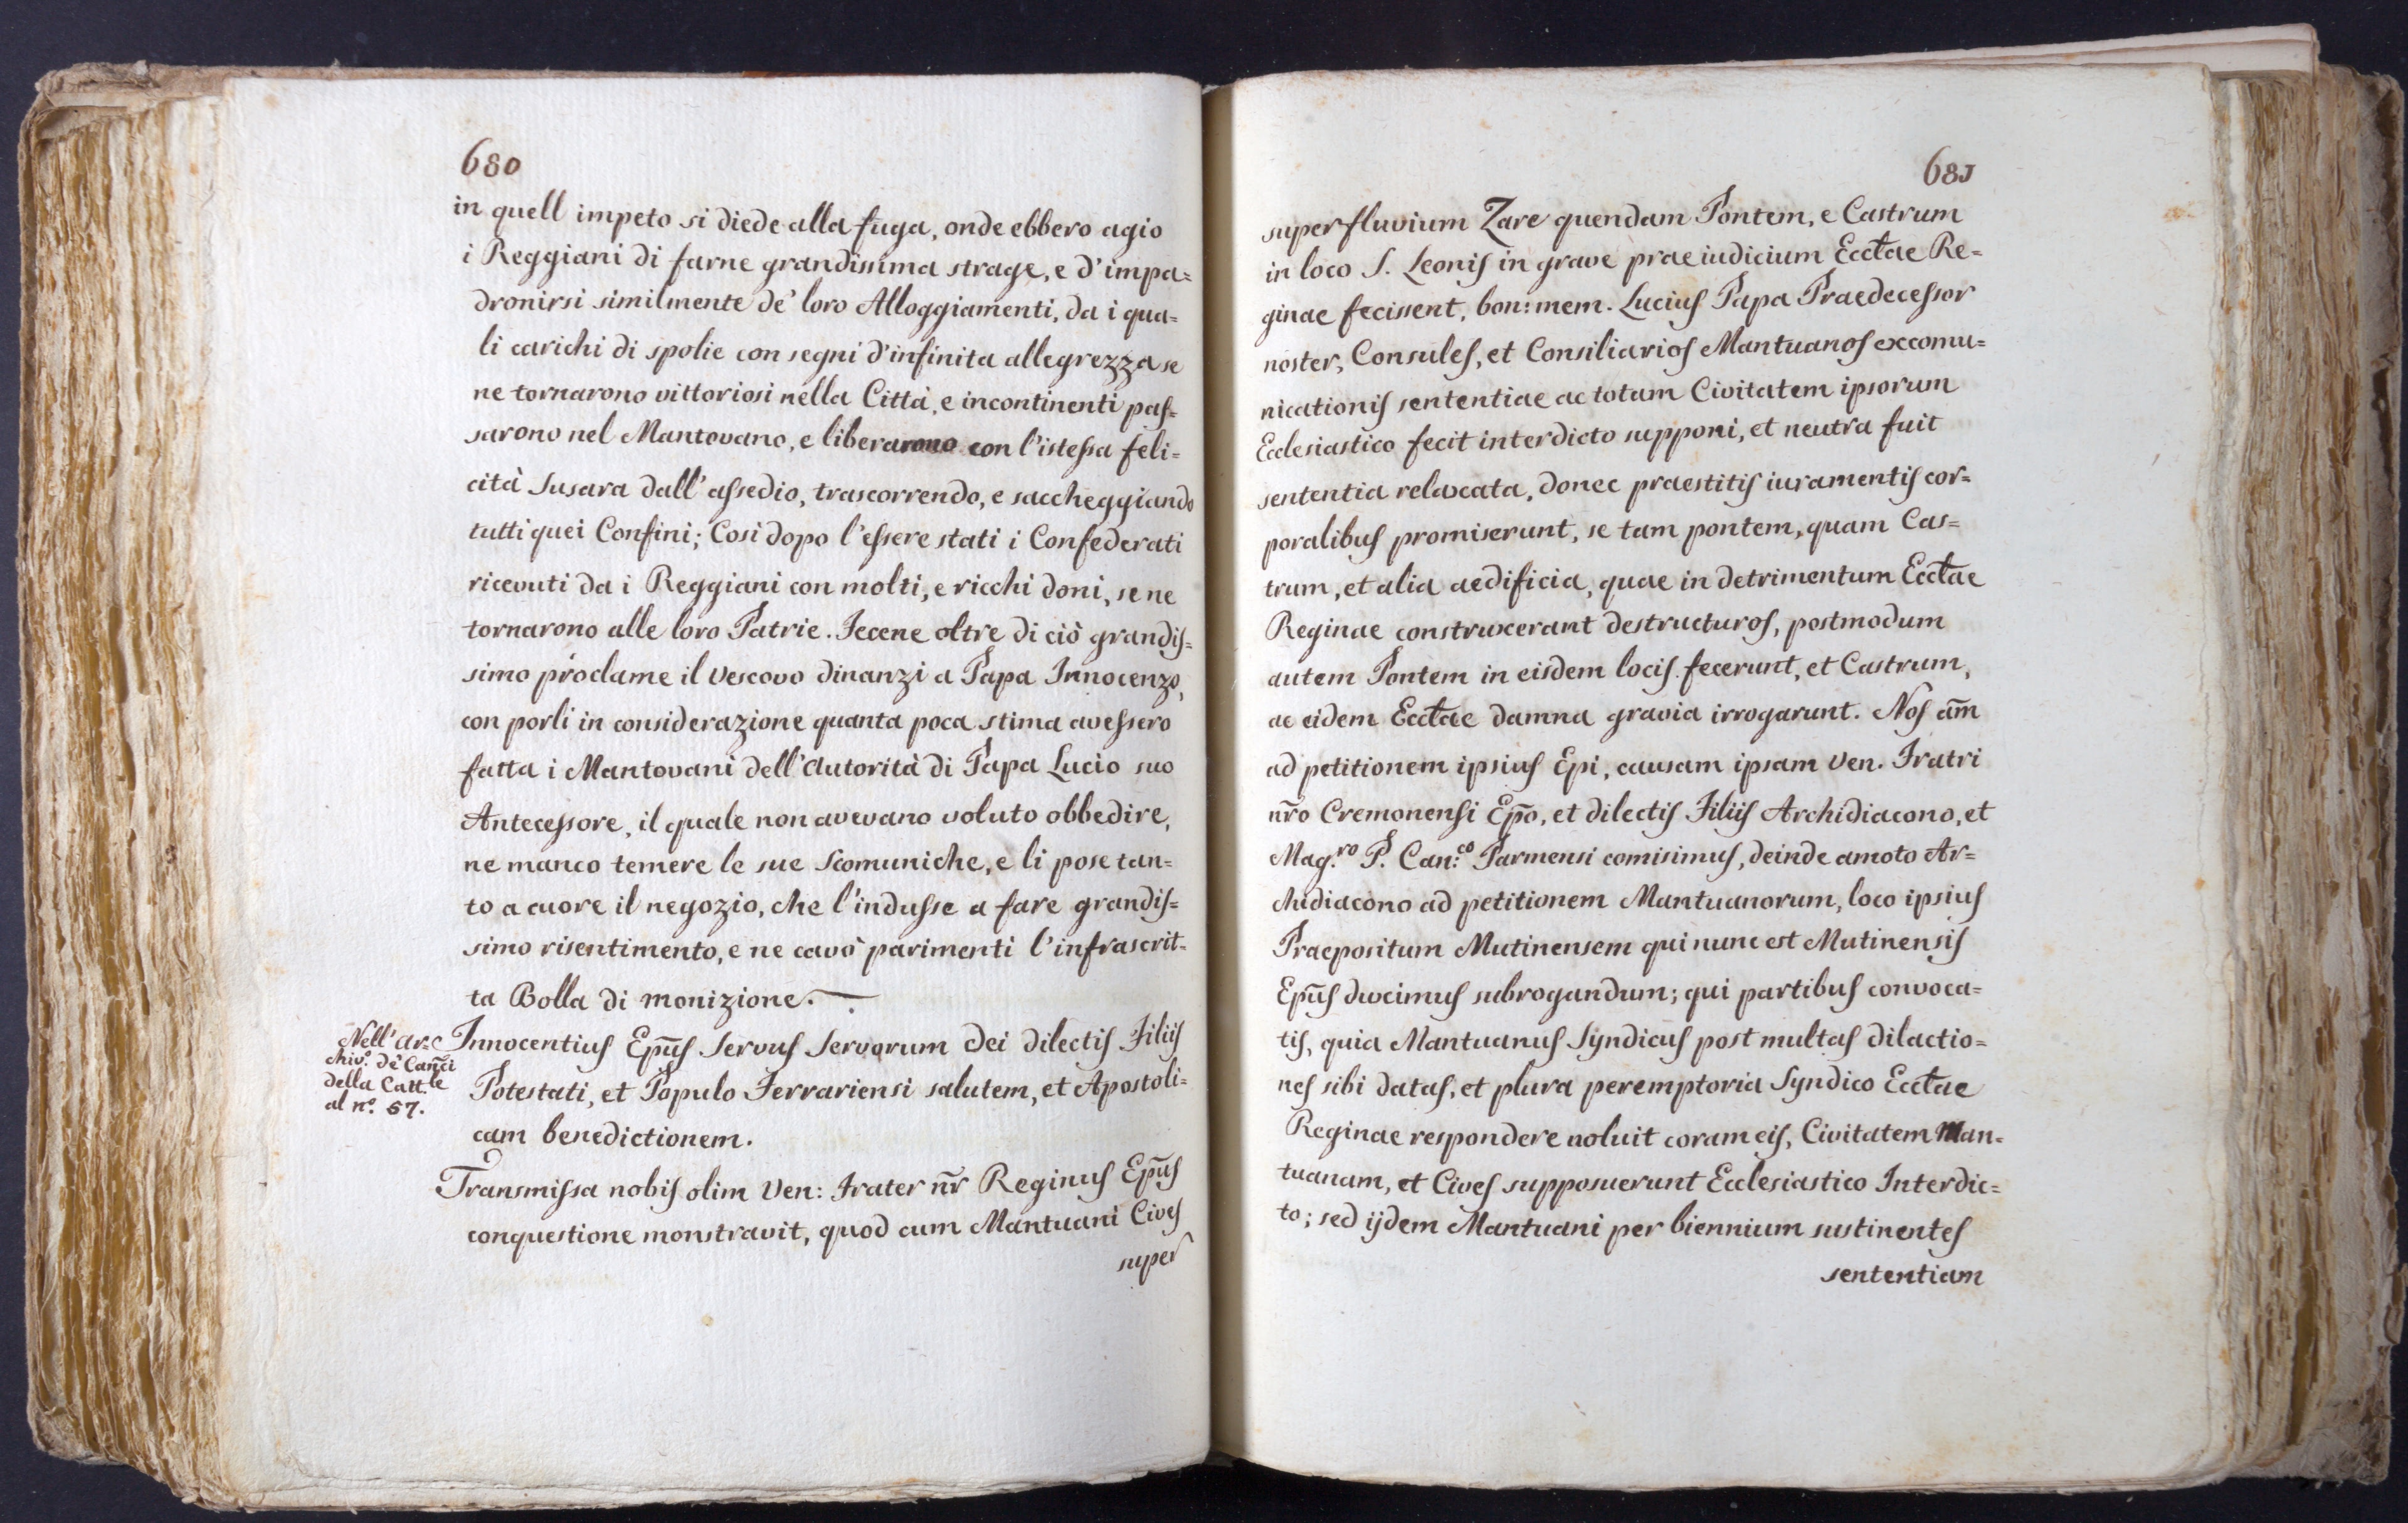 680
in quell impeto si diede alla fuga, onde ebbero agio
i Reggiani di farne grandissima strage, e d'impa=
dronirsi similmente de' loro Alloggiamenti, da i qua=
li carichi di spolie con segni d'infinita allegrezza se
ne tornarono vittoriosi nella Città, e incontinenti paſ=
sarono nel Mantovano, e liberarono con l'isteſsa feli=
cità Susara dall'aſsedio, trascorrendo, e saccheggiando
tutti quei Confini; Cosi dopo l'eſsere stati i Confederati
ricevuti da i Reggiani con molti, e ricchi doni, se ne
tornarono alle loro Patrie. Fecene oltre di ciò grandiſ=
simo proclame il Vescovo dinanzi a Papa Innocenzo,
con porli in considerazione quanta poca stima aveſsero
fatta i Mantovani dell'Autorità di Papa Lucio suo
Anteceſsore, il quale non avevano voluto obbedire,
ne manco temere le sue Scomuniche, e li pose tan=
to a cuore il negozio, che l'induſse a fare grandiſ=
simo risentimento, e ne cavò parimenti l'infrascrit=
ta Bolla di monizione.
Nell'Ar=
chiv.º de' Can̄ci
della Catt.le
al nº. 57.
Innocentiuſ Epūſ Servuſ Servorum Dei dilectiſ Filiiſ
Potestati, et Populo Ferrariensi salutem, et Apostoli=
cam benedictionem.
Transmiſsa nobiſ olim Ven: Frater nr̄ Reginuſ Epūſ
conquestione monstravit, quod cum Mantuani Civeſ
super
681
super fluvium Zare quendam Pontem, e Castrum
in loco S. Leoniſ in grave praeiudicium Eccłae Re=
ginae fecissent, bon: mem. Luciuſ Papa Praedeceſsor
noster, Consuleſ, et Consiliarioſ Mantuanoſ excomu=
nicationiſ sententiae ac totam Civitatem ipsorum
Ecclesiastico fecit interdicto supponi, et neutra fuit
sententia relaxata, donec praestitiſ iuramentiſ cor=
poralibuſ promiserunt, se tam pontem, quam Cas=
trum, et alia aedificia, quae in detrimentum Eccłae
Reginae construxerant destructuroſ, postmodum
autem Pontem in eisdem lociſ fecerunt, et Castrum,
ac eidem Eccłae damna gravia irrogarunt. Noſ am̄
ad petitionem ipsiuſ Epi, causam ipsam Ven. Fratri
nr̄o Cremonenſi Ep̄o, et dilectiſ Filiiſ Archidiacono, et
Mag.ro P. Can:co Parmensi comisimuſ, deinde amoto Ar=
chidiacono ad petitionem Mantuanorum, loco ipsiuſ
Praepositum Mutinensem qui nunc est Mutinensiſ
Epūſ duximuſ subrogandum; qui partibuſ convoca=
tiſ, quia Mantuanuſ Syndicuſ post multaſ dilactio=
neſ sibi dataſ, et plura peremptoria Syndico Eccłae
Reginae respondere noluit coram eiſ, Civitatem Man=
tuanam, et Civeſ supposuerunt Ecclesiastico Interdic=
to; sed ijdem Mantuani per biennium sustinenteſ
sententiam